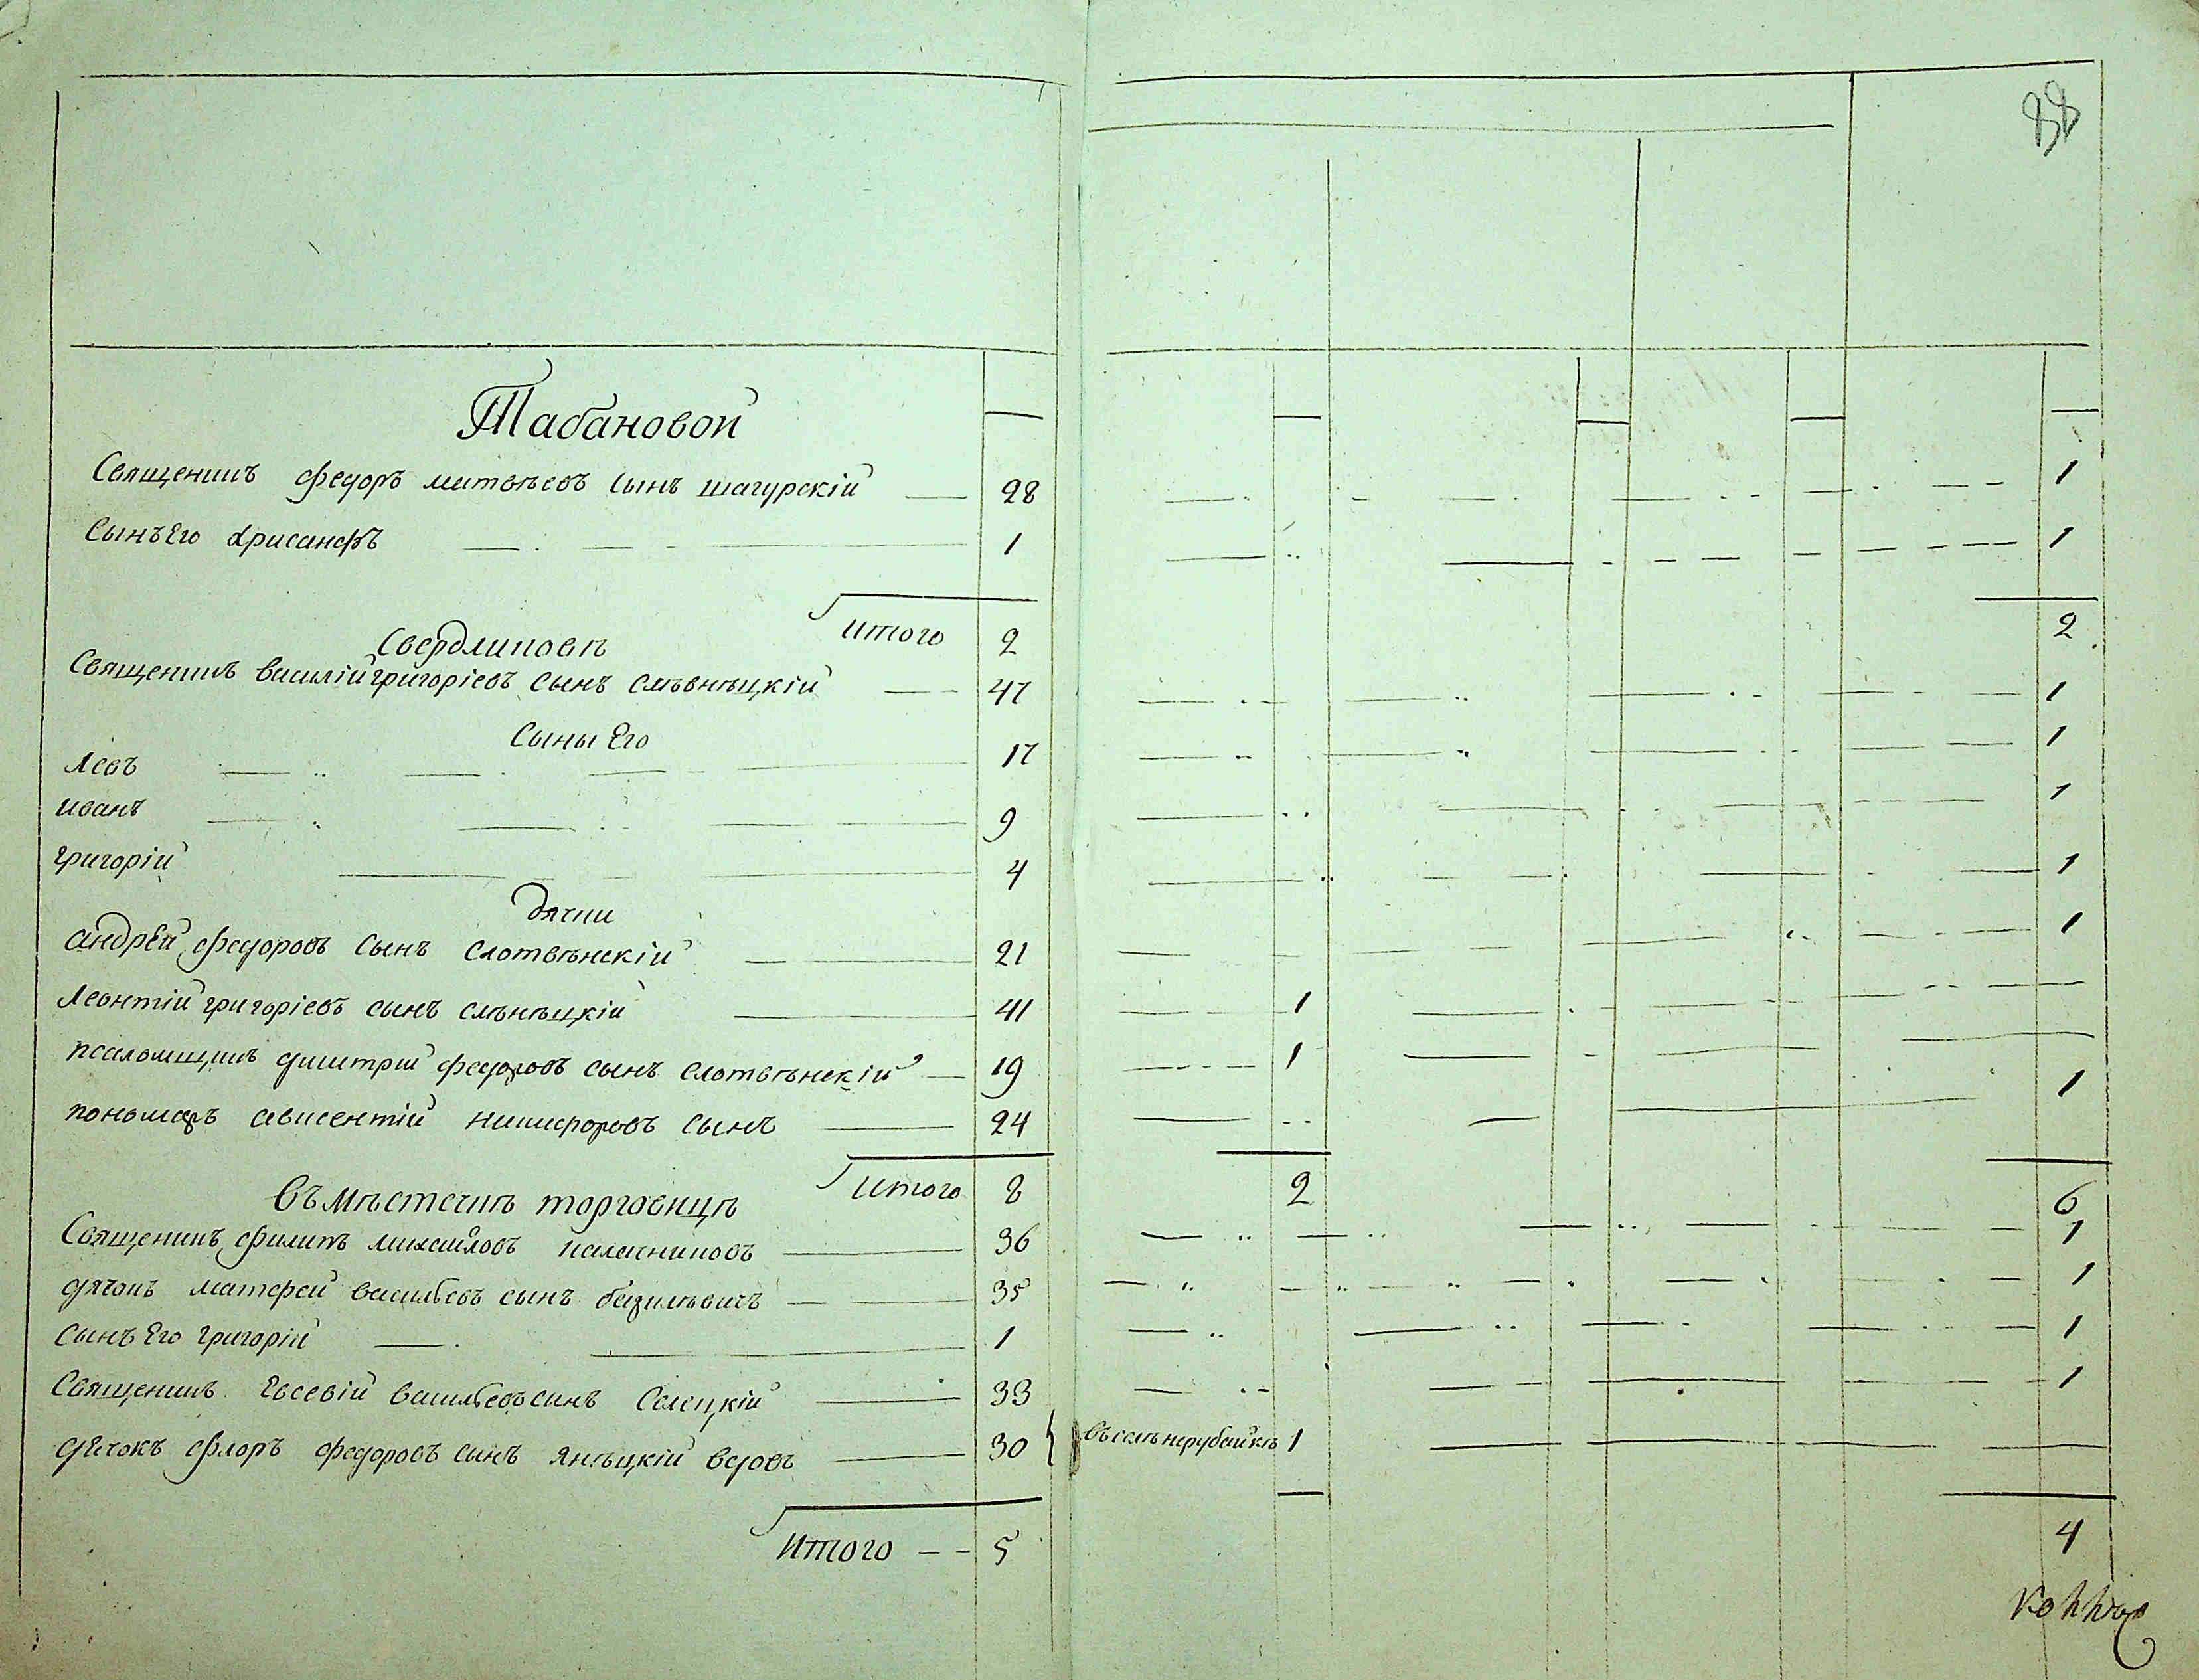 88
Табановой
Священникъ федоръ матвѣевъ сынъ шагурскій 28 1
Сынъ Его хрисанфъ 1 1
Итого 2 2
Свердликовѣ
Священникъ василій григоріевъ сынъ слѣвнѣцкій 47 1
Сыны Его
левъ 17 1
иванъ 9 1
григорій 4 1
дячки
андрей федоровъ сынъ слотвѣнскій 21 1
Леонтій григоріевъ сынъ слѣнѣцкій 41 1
псаломщикъ димитрій федоровъ сынъ слотвѣнскій 19 1
пономаръ авксентій никифоровъ сынъ 24 1
Итого 8 2 6
Въ мѣстечкѣ торговицѣ
Священникъ филипъ михайловъ калачниковъ 36 1
дячокъ матфей васильевъ сынъ базилѣвичъ 35 1
Сынъ Его григорій 1 1
Священникъ Евсевій васильевъ синъ Селецкій 33 1
дячокъ флоръ федоровъ синъ янѣцкій вдовъ 30 въ селѣ нерубайкѣ 1
Итого 5 4